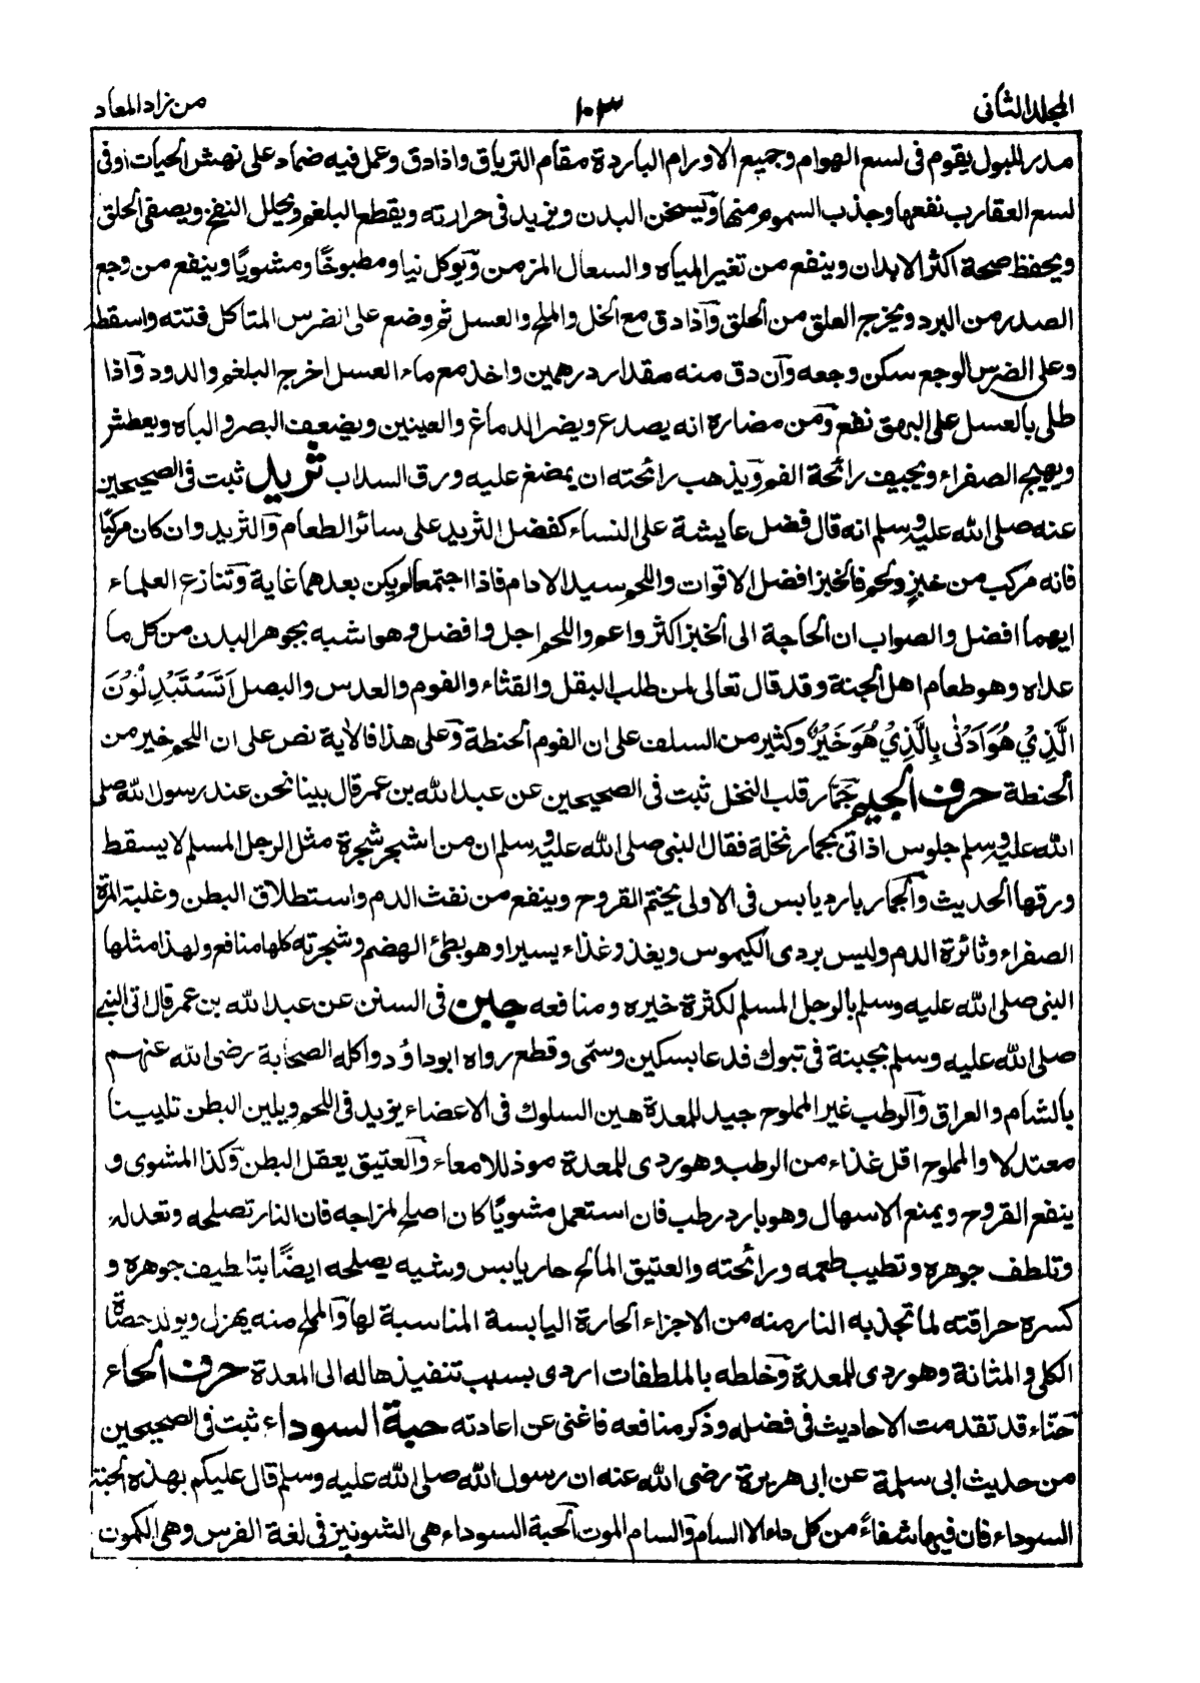 المجلد الثانى
١٠٣
من زاد المعاد
مدر للبول يقوم فى لسع الهوام وجميع الاورام الباردة مقام الترياق واذا دق وعمل فيه ضماد على نهش الحيات اوفى
لسع العقارب نفعها وجذب السموم منها ويسخن البدن ويزيد فى حرارته ويقطع البلغم ويحلل النفخ ويصفى الحلق
ويحفظ صحة اكثر الابدان وينفع من تغير المياه والسعال المزمن ويوكل نيا ومطبوخًا ومشويًا وينفع من وجع
الصدر من البرد ويخرج العلق من الحلق واذا دق مع الخل والملح والعسل ثم وضع على الضرس المتاكل فتته واسقطه
وعلى الضرس الوجع سكن وجعه وان دق منه مقدار درهمين واخذ مع ماء العسل اخرج البلغم والدود واذا
طلى بالعسل على البهق نفع ومن مضاره انه يصدع ويضر الدماغ والعينين ويضعف البصر والباه ويعطش
ويهيج الصفراء ويجيف رائحة الفم ويذهب رائحته ان يمضغ عليه ورق السداب ثريد ثبت فى الصحيحين
عنه صلى الله عليه وسلم انه قال فضل عايشة على النساء كفضل الثريد على سائر الطعام والثريد وان كان مركبًا
فانه مركب من خبز ولحم فالخبز افضل الاقوات واللحم سيد الادام فاذا اجتمعا لم يكن بعدهما غاية وتنازع العلماء
ايهما افضل والصواب ان الحاجة الى الخبز اكثر واعم واللحم اجل وافضل وهو اشبه بجوهر البدن من كل ما
عداه وهو طعام اهل الجنة وقد قال تعالى لمن طلب البقل والقثاء والفوم والعدس والبصل اَتَسْتَبْدِلُوْنَ
الَّذِيْ هُوَ اَدْنٰى بِالَّذِيْ هُوَ خَيْرٌ وكثير من السلف على ان الفوم الحنطة وعلى هذا فالآية نص على ان اللحم خير من
الحنطة حرف الجيم جَمّار قلب النخل ثبت فى الصحيحين عن عبد الله بن عمر قال بينا نحن عند رسول الله صلى
الله عليه وسلم جلوس اذ اتى بجمار نخلة فقال النبى صلى الله عليه وسلم ان من الشجر شجرة مثل الرجل المسلم لا يسقط
ورقها الحديث والجمار بارد يابس فى الاولى يختم القروح وينفع من نفث الدم واستطلاق البطن وغلبة المرة
الصفراء وثائرة الدم وليس بردى الكيموس ويغذو غذاء يسيرا وهو بطئ الهضم وشجرته كلها منافع ولهذا مثلها
النبى صلى الله عليه وسلم بالرجل المسلم لكثرة خيره ومنافعه جبن فى السنن عن عبد الله بن عمر قال اتى النبى
صلى الله عليه وسلم بجبنة فى تبوك فدعا بسكين وسمّى وقطع رواه ابو داؤد واكله الصحابة رضى الله عنهم
بالشام والعراق والرطب غير المملوح جيد للمعدة هين السلوك فى الاعضاء يزيد فى اللحم ويلين البطن تليينا
معتدلا والمملوح اقل غذاء من الرطب وهو ردى للمعدة موذ للامعاء والعتيق يعقل البطن وكذا المشوى و
ينفع القروح ويمنع الاسهال وهو بارد رطب فان استعمل مشويًا كان اصلح لمزاجه فان النار تصلحه وتعدله
وتلطف جوهره وتطيب طعمه ورائحته والعتيق المالح حار يابس وشيه يصلحه ايضًا بتلطيف جوهره و
كسره حرافته لما تجذبه النار منه من الاجزاء الحارة اليابسة المناسبة لها والمملح منه يهزل ويولد حصاة
الكلى والمثانة وهو ردى للمعدة وخلطه بالملطفات اردى بسبب تنفيذها له الى المعدة حرف الحاء
حَنّاء قد تقدمت الاحاديث فى فضله وذكر منافعه فاغنى عن اعادته حبة السوداء ثبت فى الصحيحين
من حديث ابى سلمة عن ابى هريرة رضى الله عنه ان رسول الله صلى الله عليه وسلم قال عليكم بهذه الحبة
السوداء فان فيها شفاءً من كل داء الا السام والسام الموت الحبة السوداء هى الشونيز فى لغة الفرس وهى الكمون